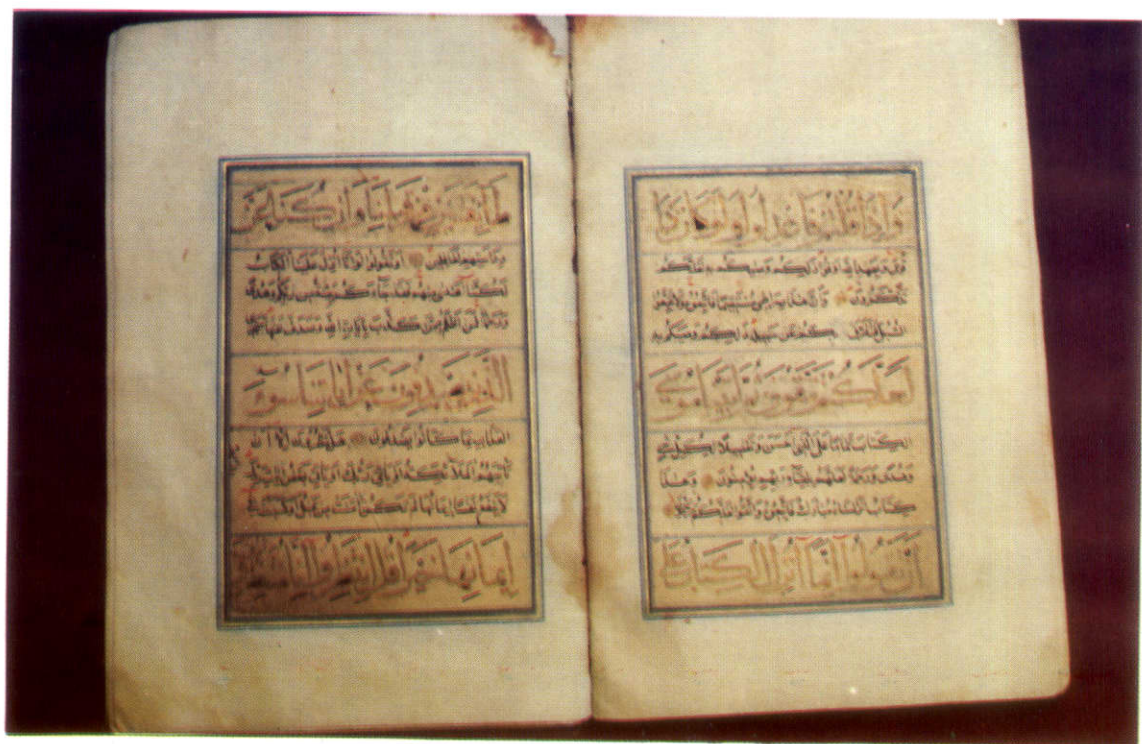 وَإِذَا قُلْتُمْ فَاعْدِلُوا وَلَوْ كَانَ ذَا
قُرْبَى وَبِعَهْدِ اللَّهِ أَوْفُوا ذَلِكُمْ وَصَّيكُمْ بِهِ لَعَلَّكُمْ
تَذَكَّرُونَ وَأَنَّ هَذَا صِرَاطِي مُسْتَقِيمًا فَاتَّبِعُوهُ وَلَا تَتَّبِعُوا
السُّبُلَ فَتَفَرَّقَ بِكُمْ عَنْ سَبِيلِهِ ذَلِكُمْ وَصَّيكُمْ بِهِ
لَعَلَّكُمْ تَتَّقُونَ ثُمَّ آتَيْنَا مُوسَى
الْكِتَابَ تَمَامًا عَلَى الَّذِي أَحْسَنَ وَتَفْصِيلًا لِكُلِّ شَيْءٍ
وَهُدًى وَرَحْمَةً لَعَلَّهُمْ بِلِقَاءِ رَبِّهِمْ يُؤْمِنُونَ وَهَذَا
كِتَابٌ أَنْزَلْنَاهُ مُبَارَكٌ فَاتَّبِعُوهُ وَاتَّقُوا لَعَلَّكُمْ تُرْحَمُونَ
أَنْ تَقُولُوا إِنَّمَا أُنْزِلَ الْكِتَابُ عَلَى
طَائِفَتَيْنِ مِنْ قَبْلِنَا وَإِنْ كُنَّا عَنْ
دِرَاسَتِهِمْ لَغَافِلِينَ أَوْ تَقُولُوا لَوْ أَنَّا أُنْزِلَ عَلَيْنَا الْكِتَابُ
لَكُنَّا أَهْدَى مِنْهُمْ فَقَدْ جَاءَكُمْ بَيِّنَةٌ مِنْ رَبِّكُمْ وَهُدًى
وَرَحْمَةٌ فَمَنْ أَظْلَمُ مِمَّنْ كَذَّبَ بِآيَاتِ اللَّهِ وَصَدَفَ عَنْهَا سَنَجْزِي
الَّذِينَ يَصْدِفُونَ عَنْ آيَاتِنَا سُوءَ
الْعَذَابِ بِمَا كَانُوا يَصْدِفُونَ هَلْ يَنْظُرُونَ إِلَّا أَنْ
تَأْتِيَهُمُ الْمَلَائِكَةُ أَوْ يَأْتِيَ رَبُّكَ أَوْ يَأْتِيَ بَعْضُ آيَاتِ رَبِّكَ
لَا يَنْفَعُ نَفْسًا إِيمَانُهَا لَمْ تَكُنْ آمَنَتْ مِنْ قَبْلُ أَوْ كَسَبَتْ فِي
إِيمَانِهَا خَيْرًا قُلِ انْتَظِرُوا إِنَّا مُنْتَظِرُونَ